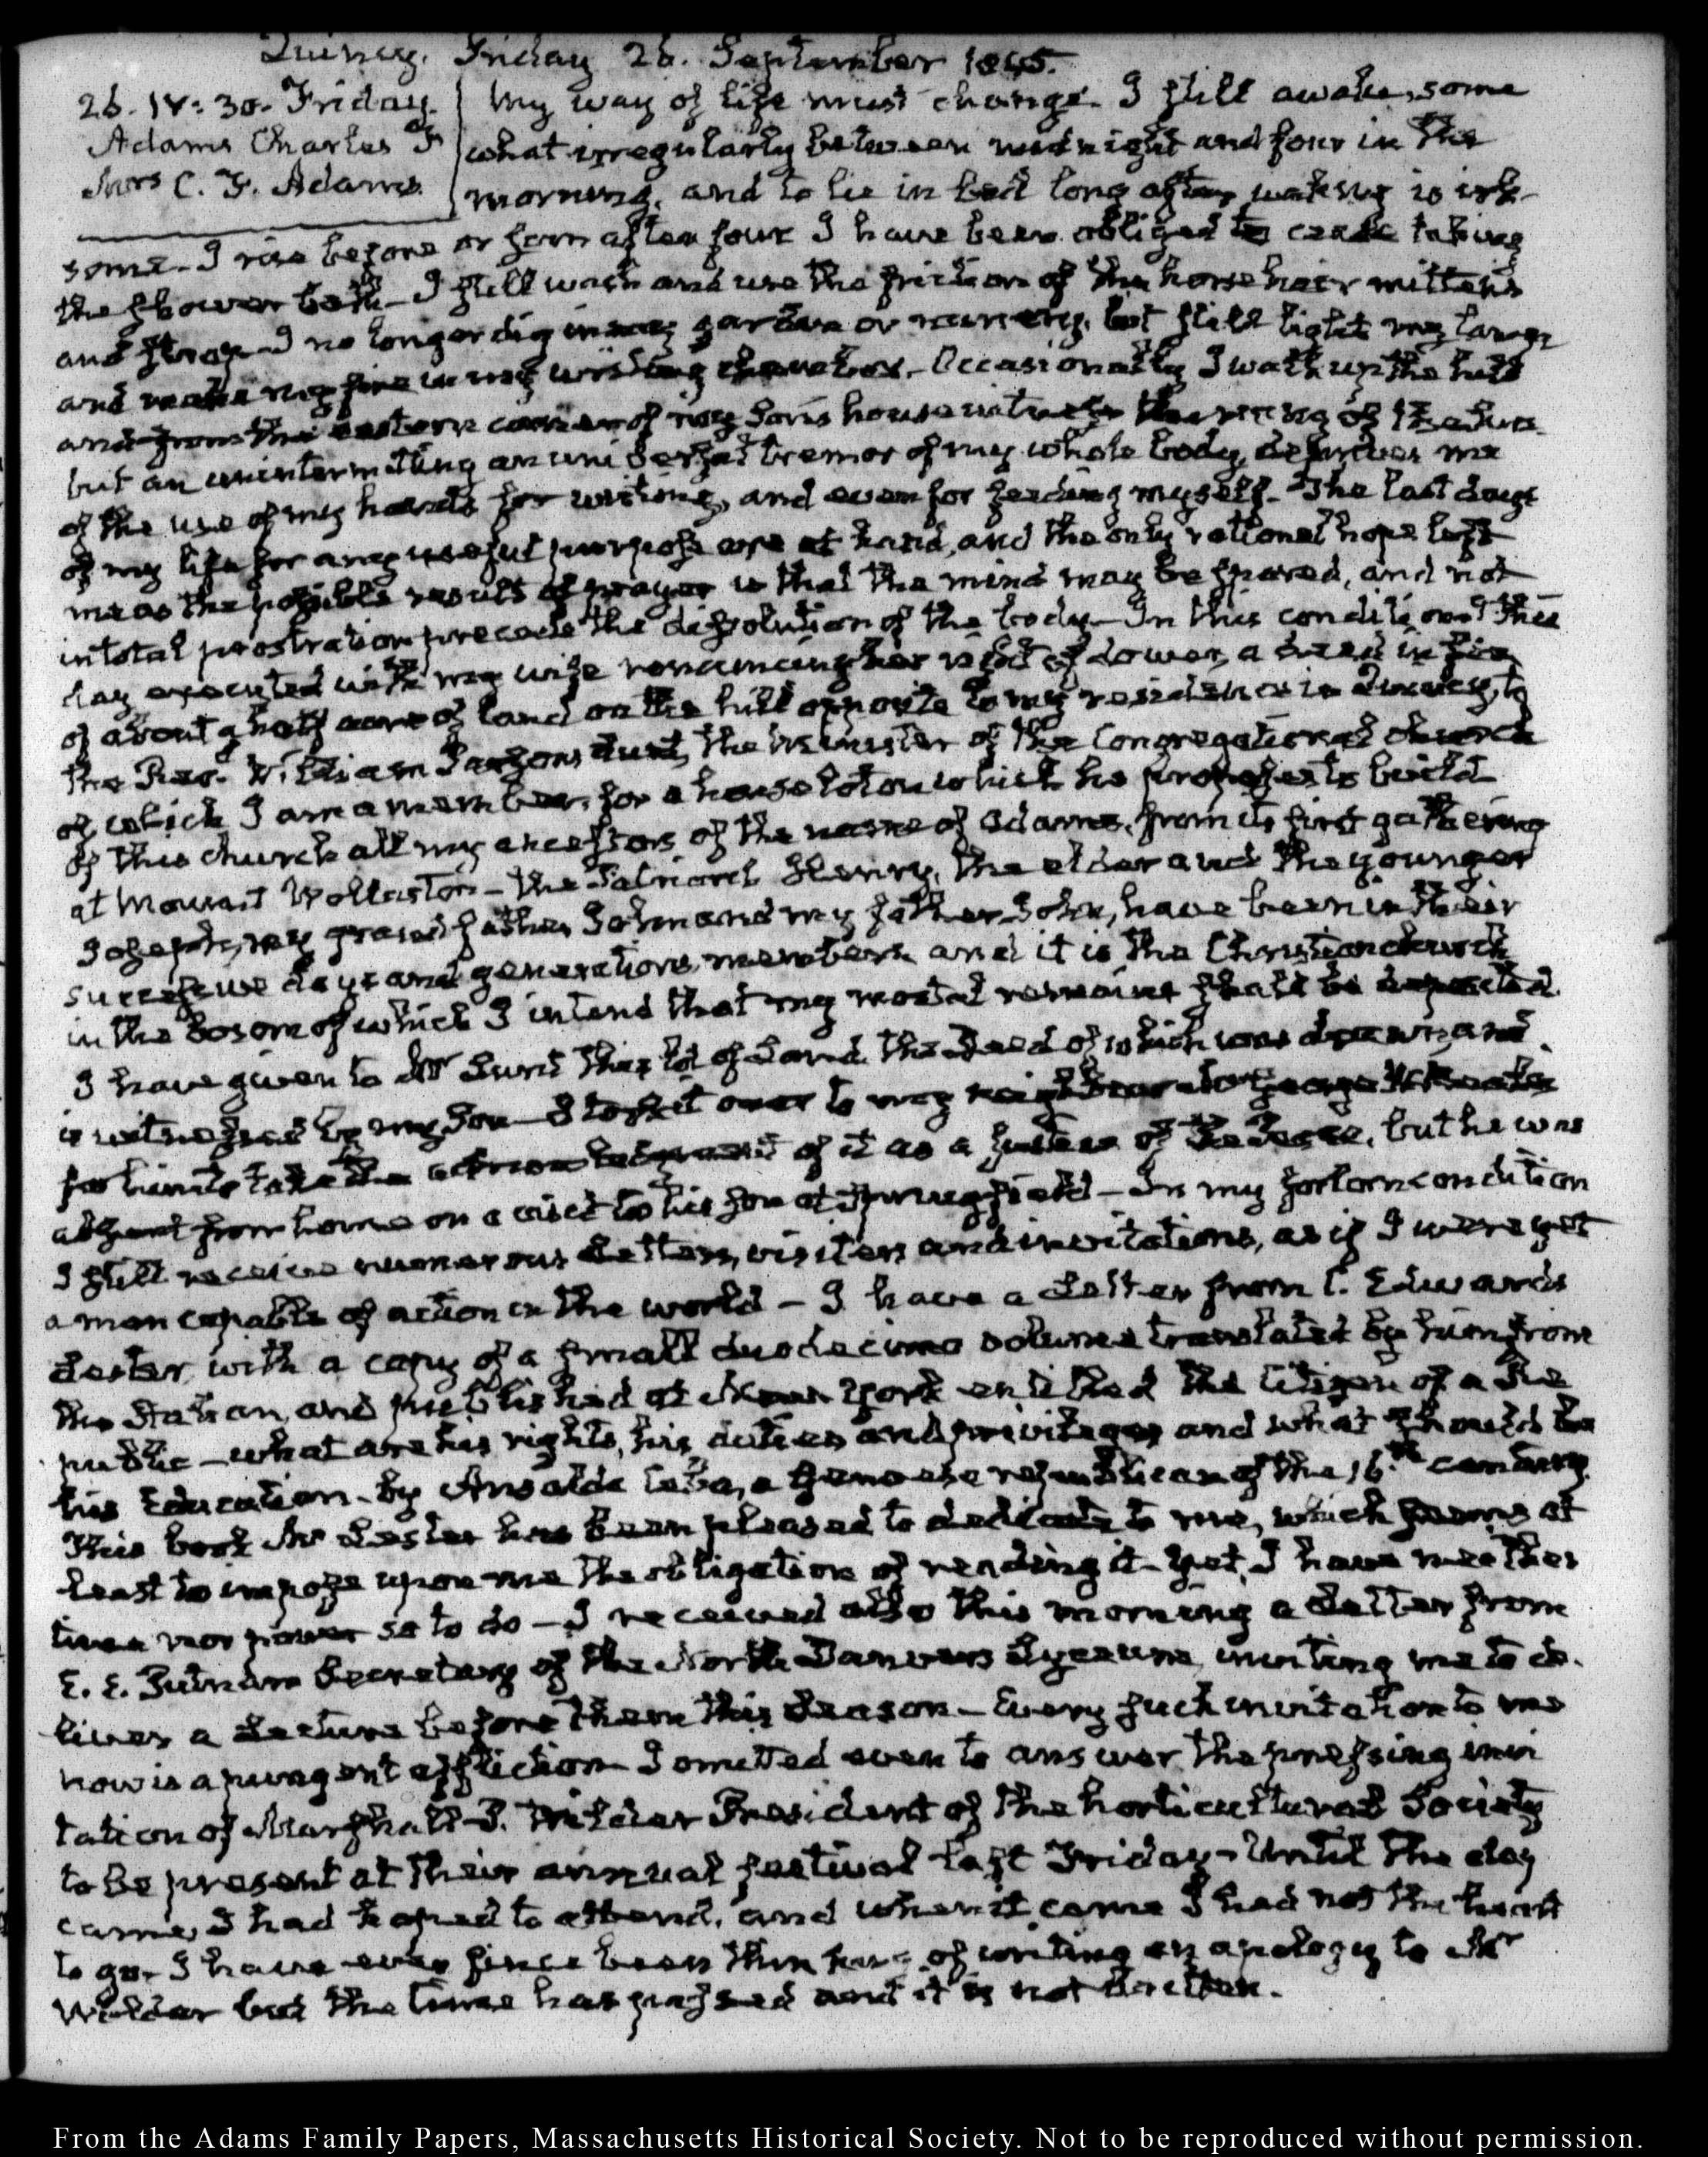 Quincy. Friday 26. September 1845.
26. IV: 30. Friday.
Adams Charles F
Mrs C. F. Adams.
My way of life must change. I still awake, some
what irregularly between midnight and four in the
morning, and to lie in bed long after waking is irk-
some. I rise before or soon after four I have been obliged to cease taking
the shower bath. I still wash and use the friction of the horsehair mittens
and strap. I no longer dig in my garden or nursery, but still light my lamp
and make my fire in my writing chamber. Occasionally I walk up the hill
and from the eastern corner of my Son's house witness the rising of the Sun
but an unintermitting an universal tremor of my whole body, deprives me
of the use of my hands for writing, and even for feeding myself. The last days
of my life for any useful purpose are at hand, and the only rational hope left
me as the possible result of prayer is that the mind may be spared, and not
in total prostration precede the dissolution of the body. In this condition I this
day executed with my wife renouncing her right of dower, a deed in fee
of about a half acre of land on the hill opposite to my residence in Quincy, to
the Rev. William Parsons Lunt, the Minister of the Congregational church
of which I am a member, for a house lot on which he proposes to build
Of this church all my ancestors of the name of Adams, from its first gathering
at Mount Wollaston — the Patriarch Henry, the elder and the younger
Joseph, my grandfather John and my father John, have been in their
successive days and generations members and it is the Christian church
in the bosom of which I intend that my mortal remains shall be deposited.
I have given to Mr Lunt this lot of Land. the Deed of which was drawn, and
is witnessed by my Son — I took it over to my neighbour Mr George W. Beale
for him to take the acknowledgment of it as a Justice of the Peace, but he was
absent from home on a visit to his son at Springfield — In my forlorn condition
I still receive numerous Letters, visitors and invitations, as if I were yet
a man capable of action in the world — I have a Letter from C. Edwards
Lester, with a copy of a small duodecimo volume translated by him from
the Italian, and published at New York entitled The Citizen of a Re
public — what are his rights, his duties and privileges and what should be
his Education. by Ansaldo Ceba, a Genoese republican of the 16th century.
This book Mr Lester has been pleased to dedicate to me, which seems at
least to impose upon me the obligation of reading it. Yet, I have neither
time nor power so to do — I received also this morning a Letter from
E. E. Putnam Secretary of the North Danvers Lyceum, inviting me to de-
liver a Lecture before them this Season — Every such invitation to me
now is a pungent affliction I omitted even to answer the pressing invi
tation of Marshall P. Wilder President of the horticultural Society
to be present at their annual festival last Friday. Until the day
came, I had hoped to attend, and when it came I had not the heart
to go. I have ever since been thinking of writing an apology to Mr
Wilder but the time has passed and it is not written.
From the Adams Family Papers, Massachusetts Historical Society. Not to be reproduced without permission.